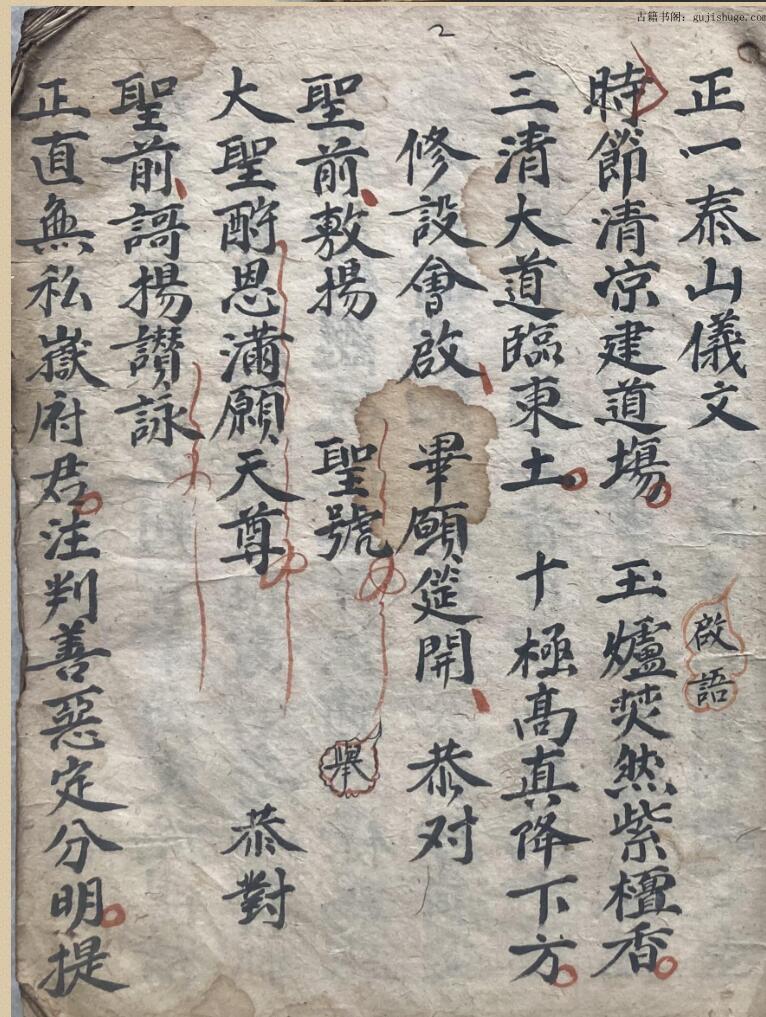 古籍书阁：gujishuge.com
2
正一泰山儀文
啟語
時節清凉建道塲 玉爐焚然紫檀香
三清大道臨東土 十極高真降下方
修設會啟 畢願筵開 恭对
聖前敷揚 聖號 舉
大聖酧恩滿願天尊 恭對
聖前謌揚讚詠
正直無私嶽府君注判善惡定分明提